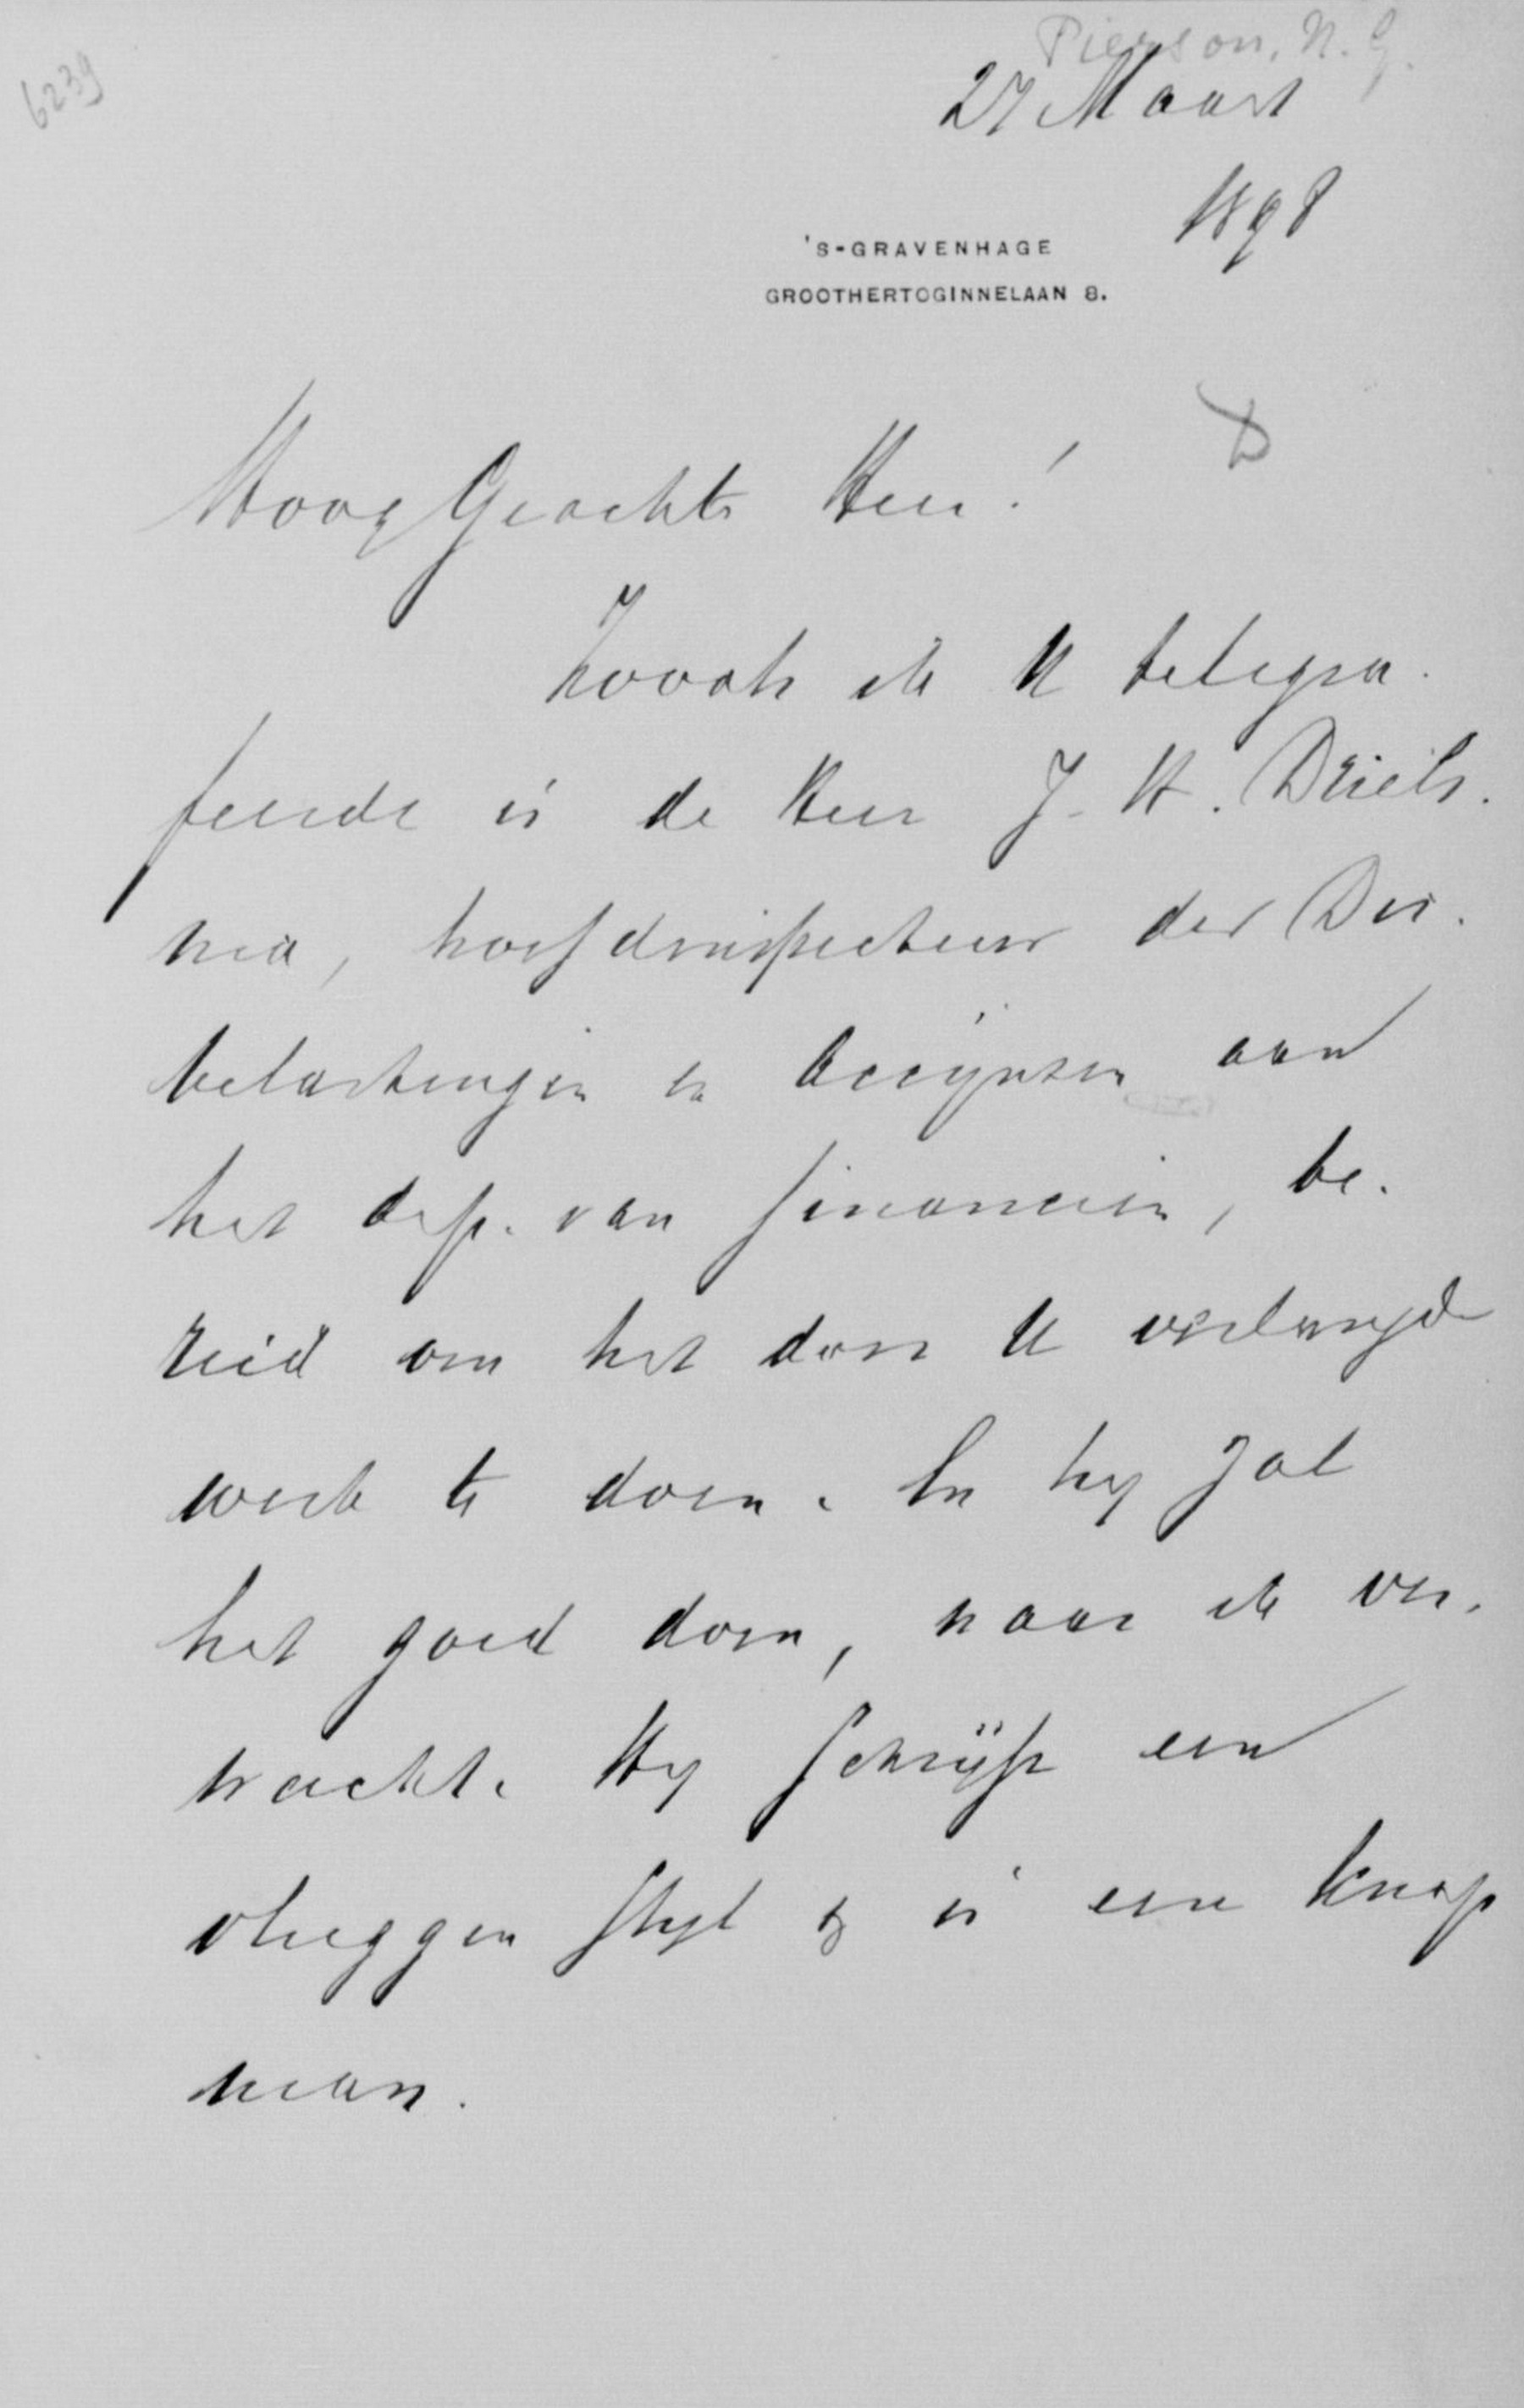 Pierson, N. G.
6239
27 Maart
1898
'S-GRAVENHAGE
GROOTHERTOGINNELAAN 8.
Hoog Geachte Heer!
Zooals ik U telegra-
feerde is de Heer J. H. Driels-
ma, hoofdinspecteur der Dir.
belastingen en Accijnsen aan
het dep. van financien, be-
reid om het door U verlangde
werk te doen. En hy zal
het goed doen, naar ik ver-
wacht. Hy schrijft een
vluggen styl en is een knap
man.